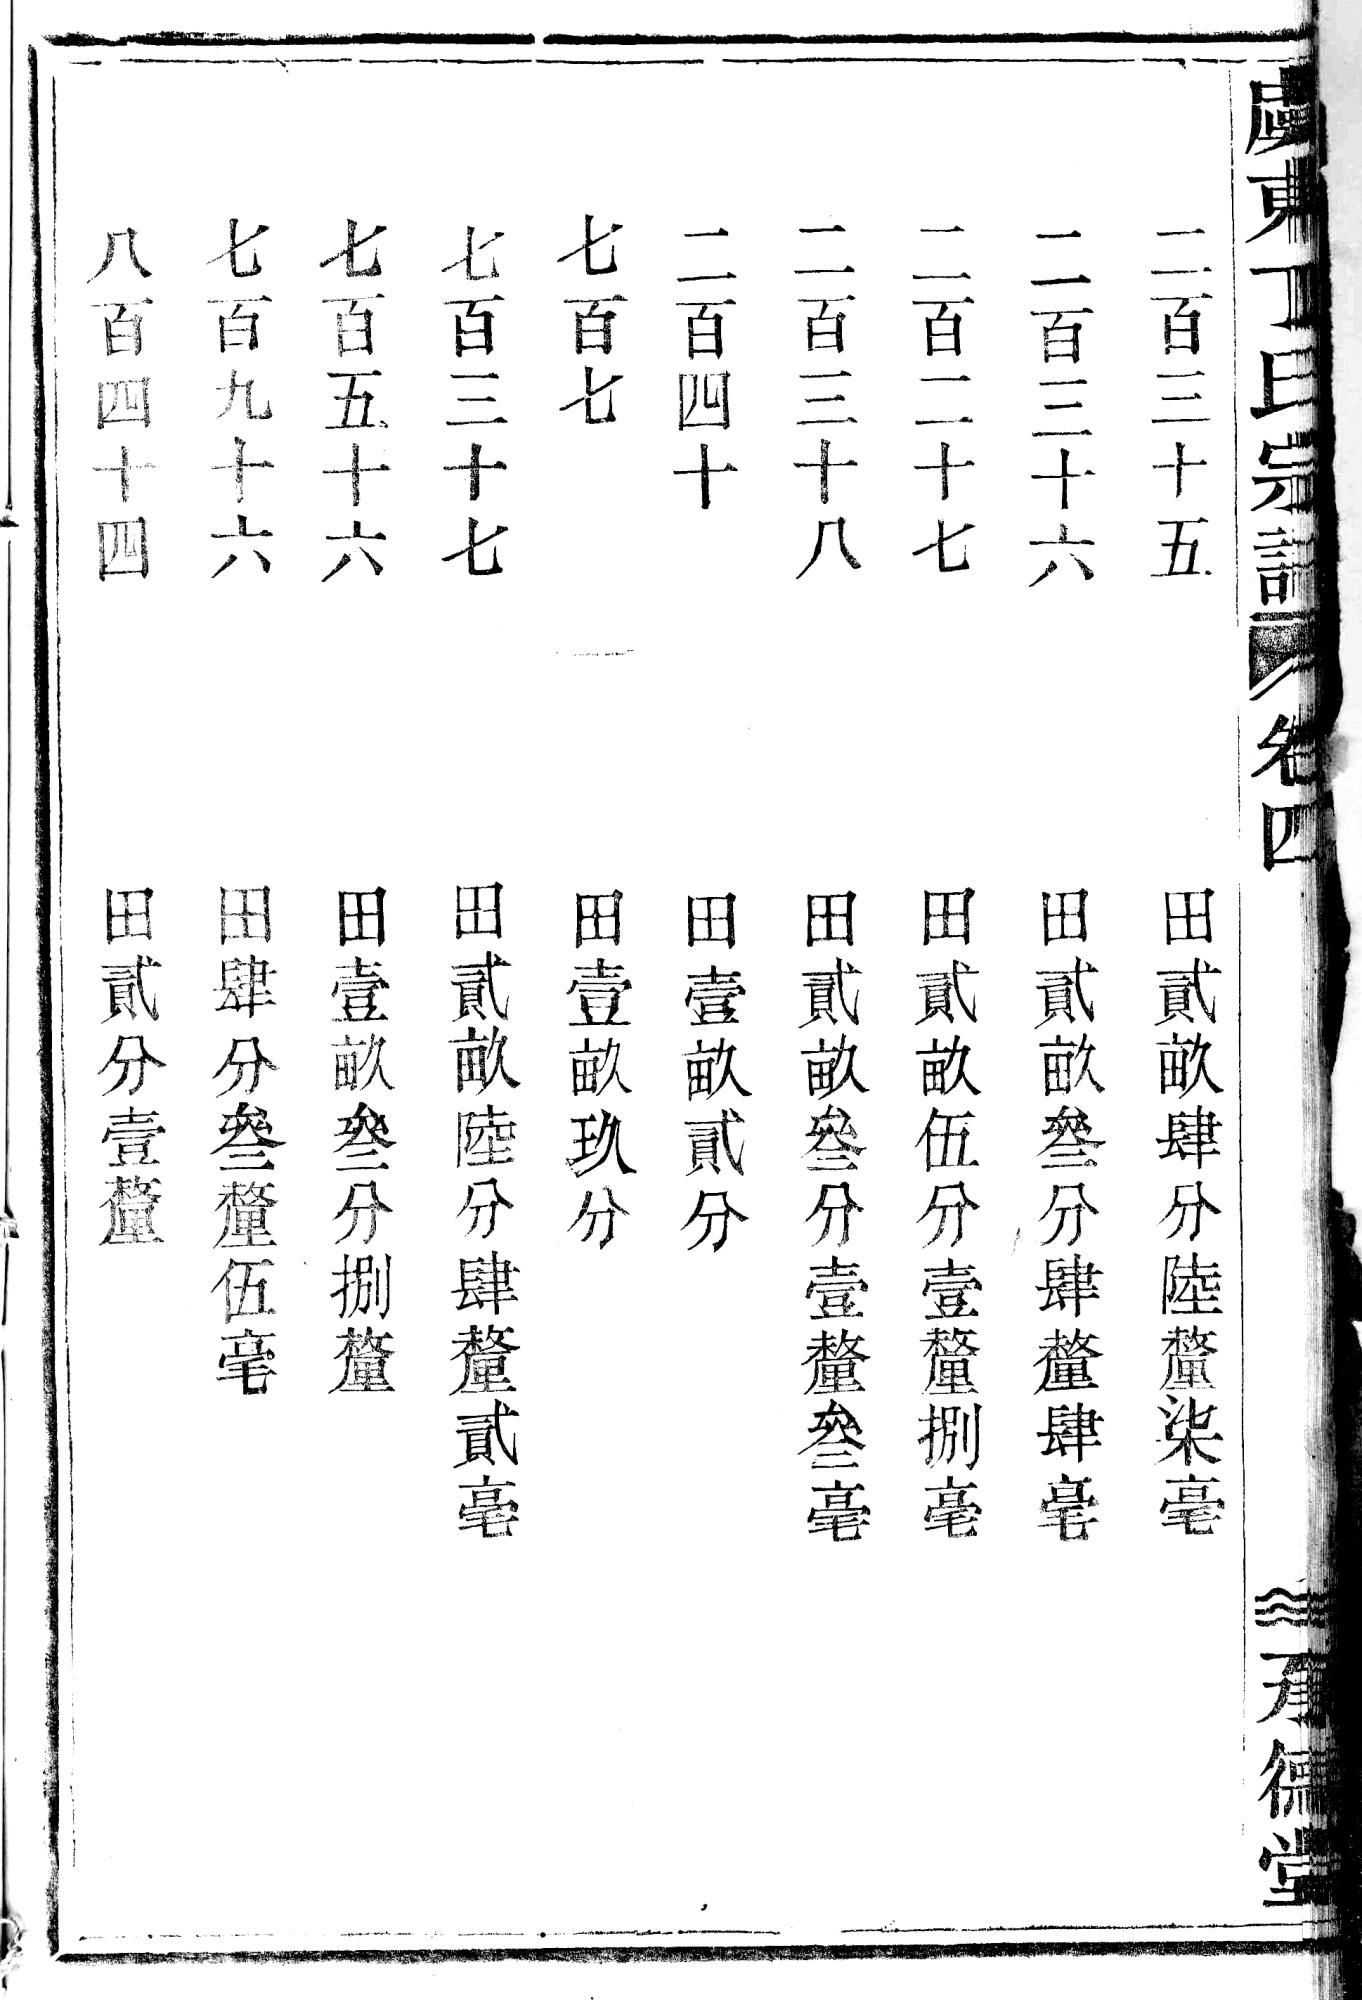 虞東丁氏宗譜 卷四 承德堂
二百三十五 田貳畝肆分陸釐柒毫
二百三十六 田貳畝叄分肆釐肆毫
二百二十七 田貳畝伍分壹釐捌毫
二百三十八 田貳畝叄分壹釐叄毫
二百四十 田壹畝貳分
七百七 田壹畝玖分
七百三十七 田貳畝陸分肆釐貳毫
七百五十六 田壹畝叄分捌釐
七百九十六 田肆分叄釐伍毫
八百四十四 田貳分壹釐